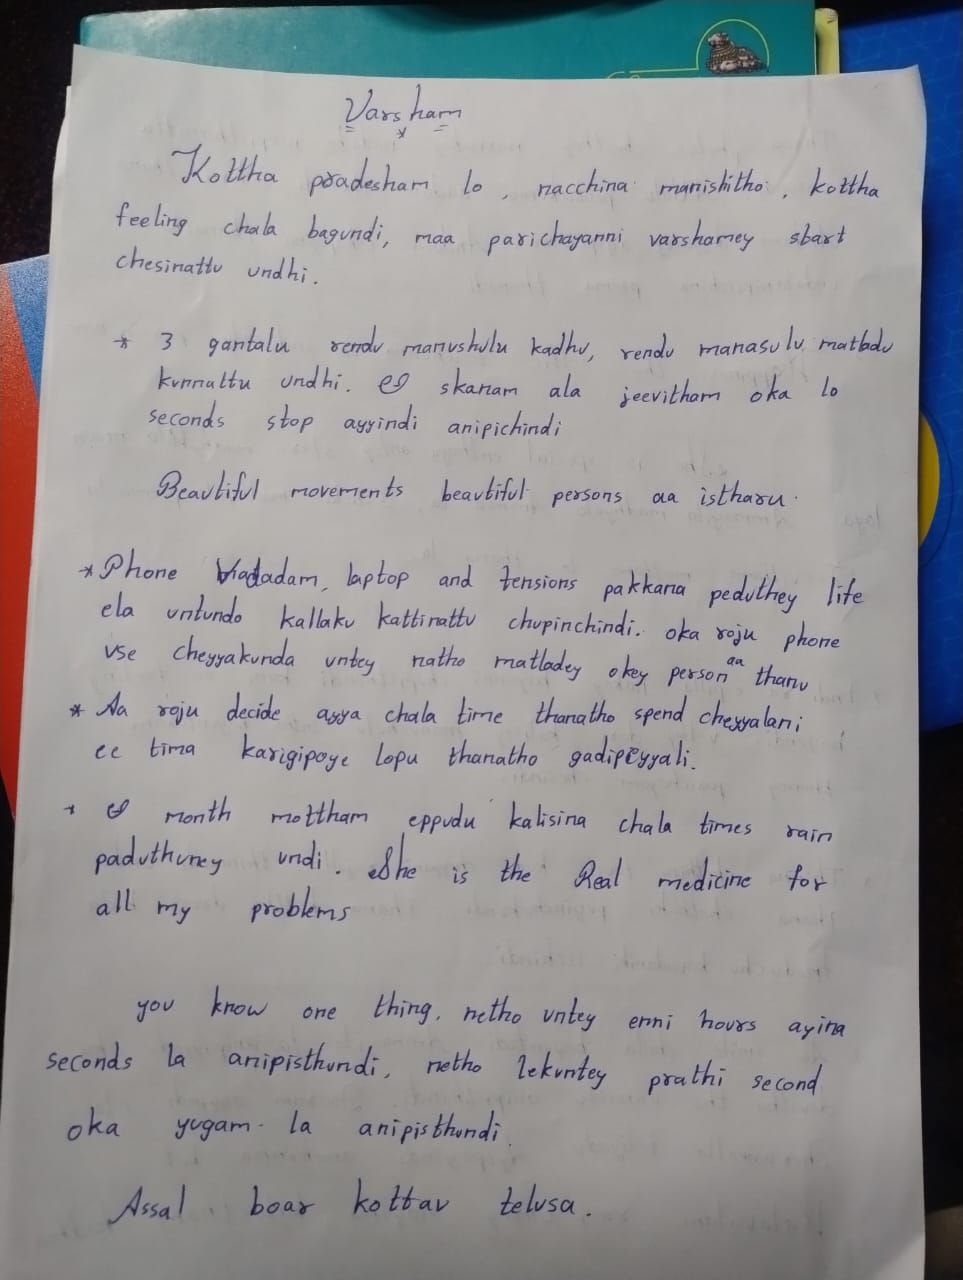 Varsham
Kottha pradesham lo, nacchina manishitho, kottha
feeling chala bagundi, maa parichayanni varshamey sbart
chesinattu undhi.
* 3 gantalu rendu manushulu kadhu, rendu manasulu matladu
kunnattu undhi. skanam ala jeevitham oka lo
seconds stop ayyindi anipichindi
Beautiful movements beautiful persons aa istharu.
* Phone Vadadam, laptop and tensions pakkana peduthey life
ela untundo kallaku kattinattu chupinchindi. oka roju phone
use cheyyakunda untey natho matladey okey person aa thanu
* Aa roju decide ayya chala time thanatho spend cheyyalani,
ee time karigipoye lopu thanatho gadipeyyali.
* month mottham eppudu kalisina chala times rain
paduthuney undi. She is the Real medicine for
all my problems
you know one thing, netho untey enni hours ayina
seconds la anipisthundi, netho lekuntey prathi second
oka yugam la anipisthundi
Assal boar kottav telusa.